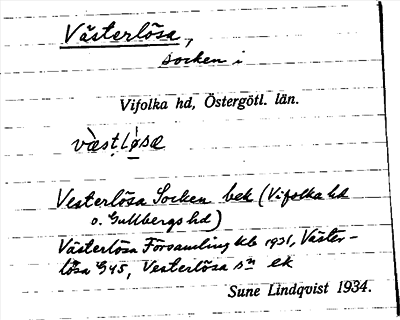 Västerlösa,
socken i
Vifolka hd, Östergötl. län.
væst lösæ
Vesterlösa Socken bek (Vifolka hd
o. Gullbergs hd)
Västerlösa Församling kb 1931, Väster-
lösa G45, Vesterlösa sn ek
Sune Lindqvist 1934.